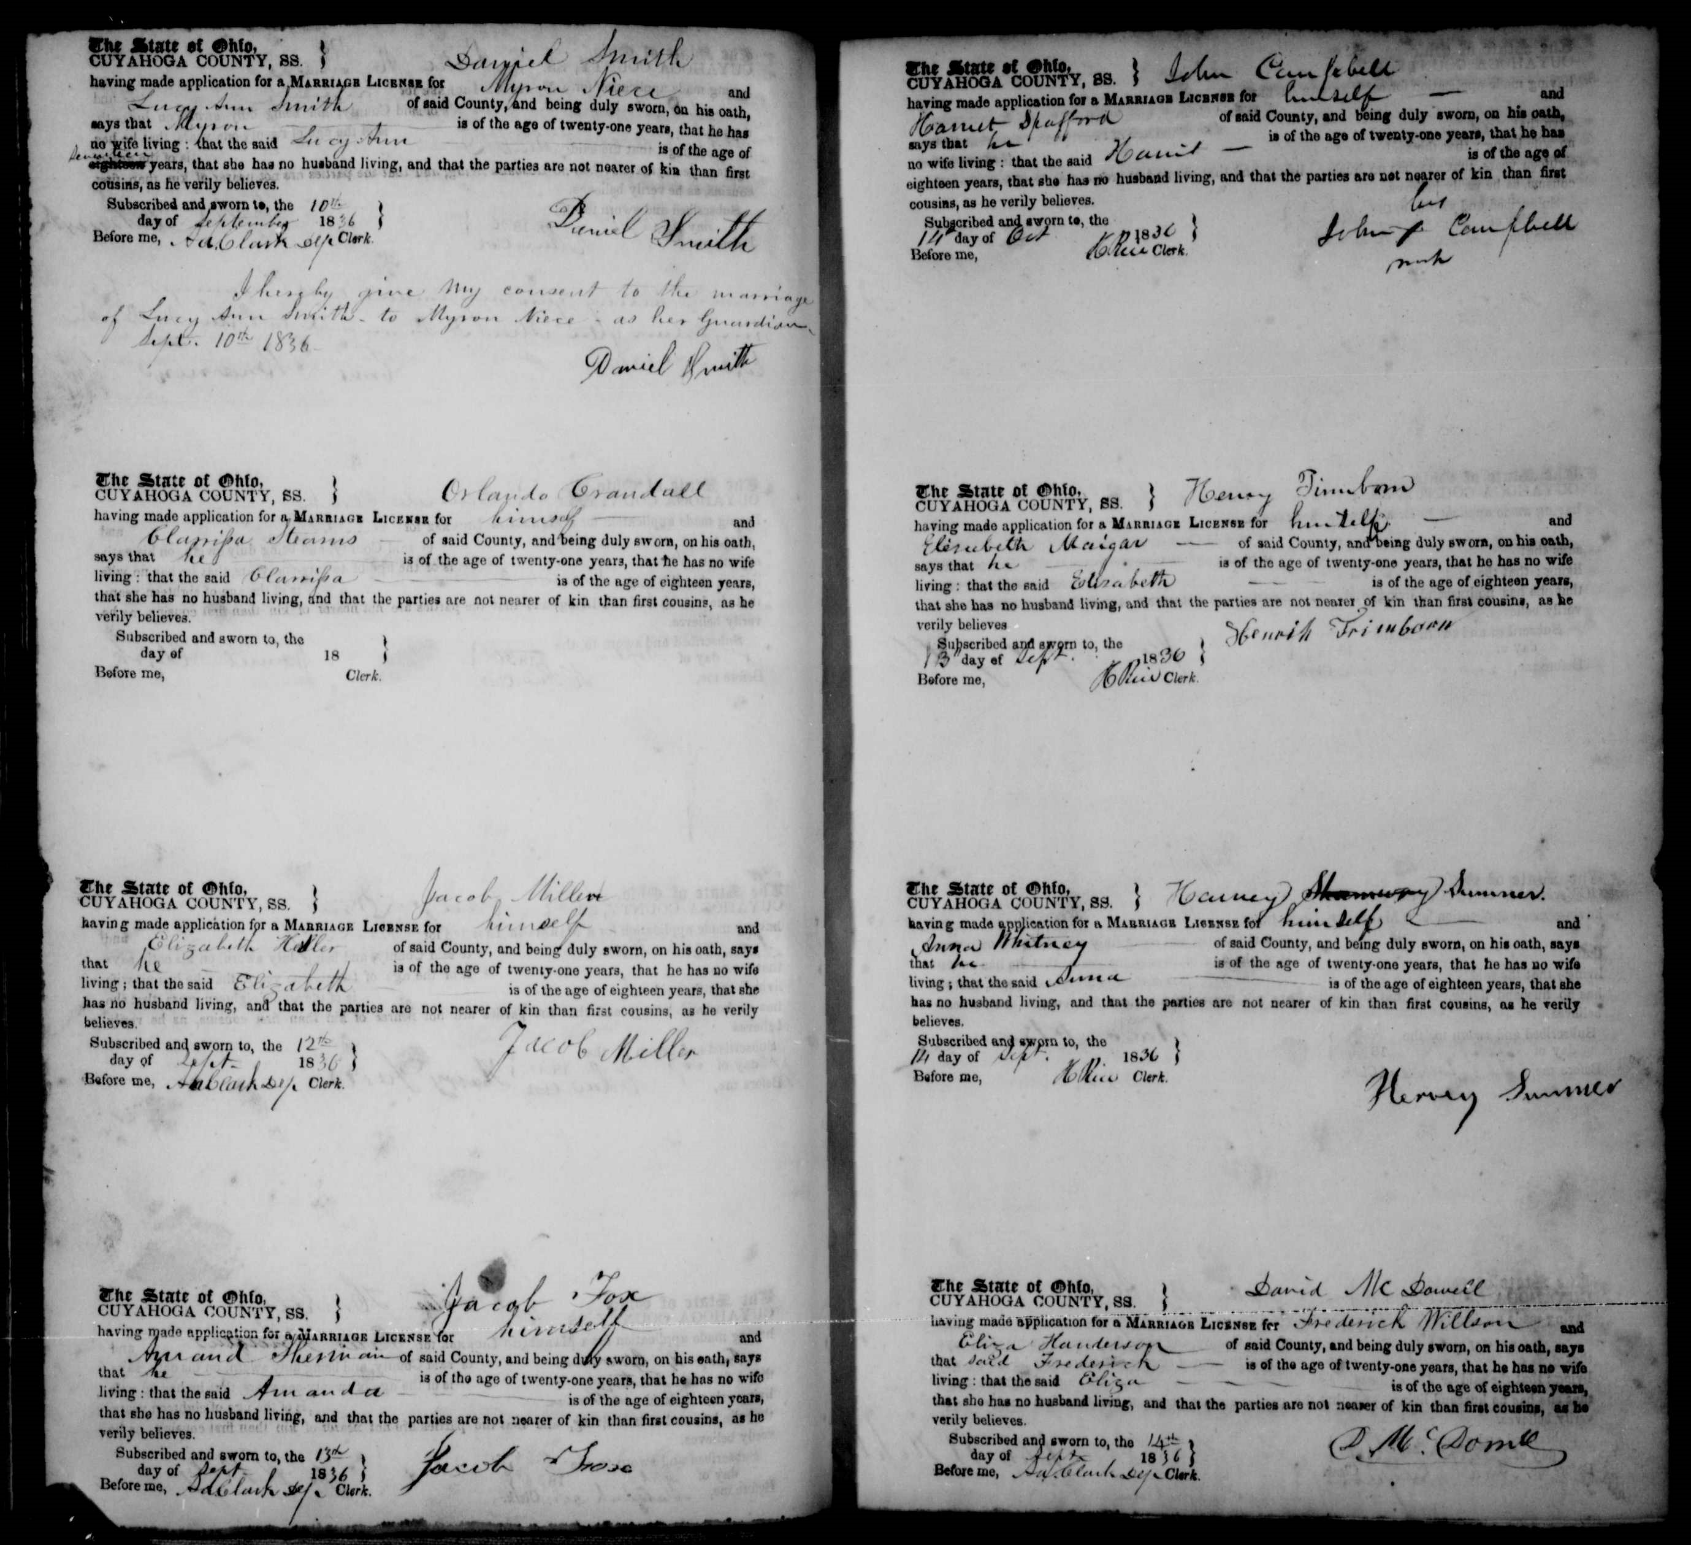 The State of Ohio,
CUYAHOGA COUNTY, SS. } Daniel Smith
having made application for a MARRIAGE LICENSE for Myron Niece and
Lucy Ann Smith of said County, and being duly sworn, on his oath,
says that Myron is of the age of twenty-one years, that he has
no wife living : that the said Lucy Ann is of the age of
Seventeen
eighteen years, that she has no husband living, and that the parties are not nearer of kin than first
cousins, as he verily believes.
Subscribed and sworn to, the 10th
day of September 1836 }
Before me, Clark Dep Clerk.
Daniel Smith
I hereby give my consent to the marriage
of Lucy Ann Smith - to Myron Niece - as her Guardian
Sept. 10th 1836
Daniel Smith
The State of Ohio,
CUYAHOGA COUNTY, SS. } Orlando Crandall
having made application for a MARRIAGE LICENSE for himself and
Clarissa Stearns of said County, and being duly sworn, on his oath,
says that he is of the age of twenty-one years, that he has no wife
living : that the said Clarissa is of the age of eighteen years,
that she has no husband living, and that the parties are not nearer of kin than first cousins, as he
verily believes.
Subscribed and sworn to, the
day of 18 }
Before me, Clerk.
The State of Ohio,
CUYAHOGA COUNTY, SS. } Jacob Miller
having made application for a MARRIAGE LICENSE for himself and
Elizabeth of said County, and being duly sworn, on his oath, says
that he is of the age of twenty-one years, that he has no wife
living ; that the said Elizabeth is of the age of eighteen years, that she
has no husband living, and that the parties are not nearer of kin than first cousins, as he verily
believes.
Subscribed and sworn to, the 12th
day of Sept 1836 }
Before me, Clark Dep Clerk.
Jacob Miller
The State of Ohio,
CUYAHOGA COUNTY, SS. } Jacob Fox
having made application for a MARRIAGE LICENSE for himself and
Amand Sherman of said County, and being duly sworn, on his oath, says
that he is of the age of twenty-one years, that he has no wife
living : that the said Amanda is of the age of eighteen years,
that she has no husband living, and that the parties are not nearer of kin than first cousins, as he
verily believes.
Subscribed and sworn to, the 13th
day of Sept 1836 }
Before me, Clark Dep Clerk.
Jacob
The State of Ohio,
CUYAHOGA COUNTY, SS. } John Campbell
having made application for a MARRIAGE LICENSE for himself — and
Harriet Spafford of said County, and being duly sworn, on his oath,
says that he is of the age of twenty-one years, that he has
no wife living : that the said Harriet — is of the age of
eighteen years, that she has no husband living, and that the parties are not nearer of kin than first
cousins, as he verily believes.
Subscribed and sworn to, the
14 day of Oct 1836 }
Before me, H Rice Clerk.
his
John x Campbell
mark
The State of Ohio,
CUYAHOGA COUNTY, SS. } Henry Trimborn
having made application for a MARRIAGE LICENSE for himself — and
Elizabeth Maigar — of said County, and being duly sworn, on his oath,
says that he is of the age of twenty-one years, that he has no wife
living : that the said Elisabeth — is of the age of eighteen years,
that she has no husband living, and that the parties are not nearer of kin than first cousins, as he
verily believes
Subscribed and sworn to, the
13 day of Sept. 1836 }
Before me, H Rice Clerk.
Henrih Trimborn
The State of Ohio,
CUYAHOGA COUNTY, SS. } Harvey Shumway Sumner.
having made application for a MARRIAGE LICENSE for himself and
Anna Whitney of said County, and being duly sworn, on his oath, says
that he is of the age of twenty-one years, that he has no wife
living ; that the said Anna is of the age of eighteen years, that she
has no husband living, and that the parties are not nearer of kin than first cousins, as he verily
believes.
Subscribed and sworn to, the
14 day of Sept. 1836 }
Before me, H Rice Clerk.
Hervey Sumner
The State of Ohio,
CUYAHOGA COUNTY, SS. } David Mc Dowell
having made application for a MARRIAGE LICENSE for Frederick Willson and
Eliza Handerson of said County, and being duly sworn, on his oath, says
that said Frederick — is of the age of twenty-one years, that he has no wife
living : that the said Eliza — is of the age of eighteen years,
that she has no husband living, and that the parties are not nearer of kin than first cousins, as he
verily believes.
Subscribed and sworn to, the 14th
day of Sept 1836 }
Before me, Clark Dep Clerk.
D McDowell